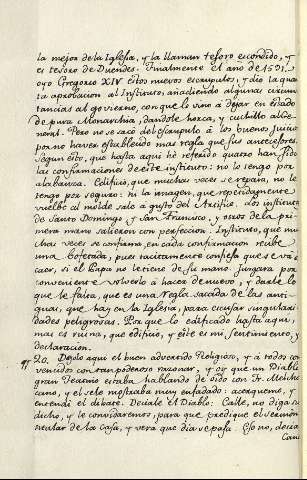 la mejor de la Iglesia, y la llaman tesoro escondido, y
es tesoro de Duendes. Finalmente el año de 1591.
oyó Gregorio XIV estos nuevos escrupulos, y dio la quarta
aprobacion al Instituto, añadiendo algunas circuns
tancias al govierno, con que lo vino á dejar en estado
de pura Monarchia, dandole horca, y cuchillo al Ge
neral. Pero no se sacó del escrupulo á los buenos juicios
por no haver establecido mas regla que sus antecesores.
Segun esto, que hasta aqui hé referido quatro han sido
las confirmaciones de este instituto: no lo tengo por
alabanza. Edificio, que muchas veces se repara, no le
tengo por seguro: ni la imagen, que repetidamente
vuelve al molde sale a gusto del Artifice. Los institutos
de Santo Domingo, y San Francisco, y otros de la pri
mera mano salieron con perfeccion. Instituto, que mu
chas veces se confirma, en cada confirmacion recibe
una bofetada, pues tacitamente confiesa que se vá á
caer, si el Papa no le tiene de su mano. juzgara por
conveniente volverlo á hacer de nuevo, y darle lo
que le falta, que es una Regla sacada de las anti
guas, que hay en la Iglesia, para escusar singulari
dades peligrosas. Por que lo edificado hasta aqui,
mas es ruina, que edificio, y este es mi sentimiento, y
declaracion.
20. Dejolo aqui el buen advertido Religioso, y á todos con
vencidos con tan poderoso razonar, y oí que un Diablo
gran Teatino estaba hablando de oido con Fr. Melchor
cano, y el se le mostraba muy enfadado: acerqueme, y
entendi el debate. Deciale el Diablo: Calle, no diga su
dicho, y le convidaremos, para que predique el sermon
titular de la Casa, y verá que dia se pasa. Eso no, decia
Cano